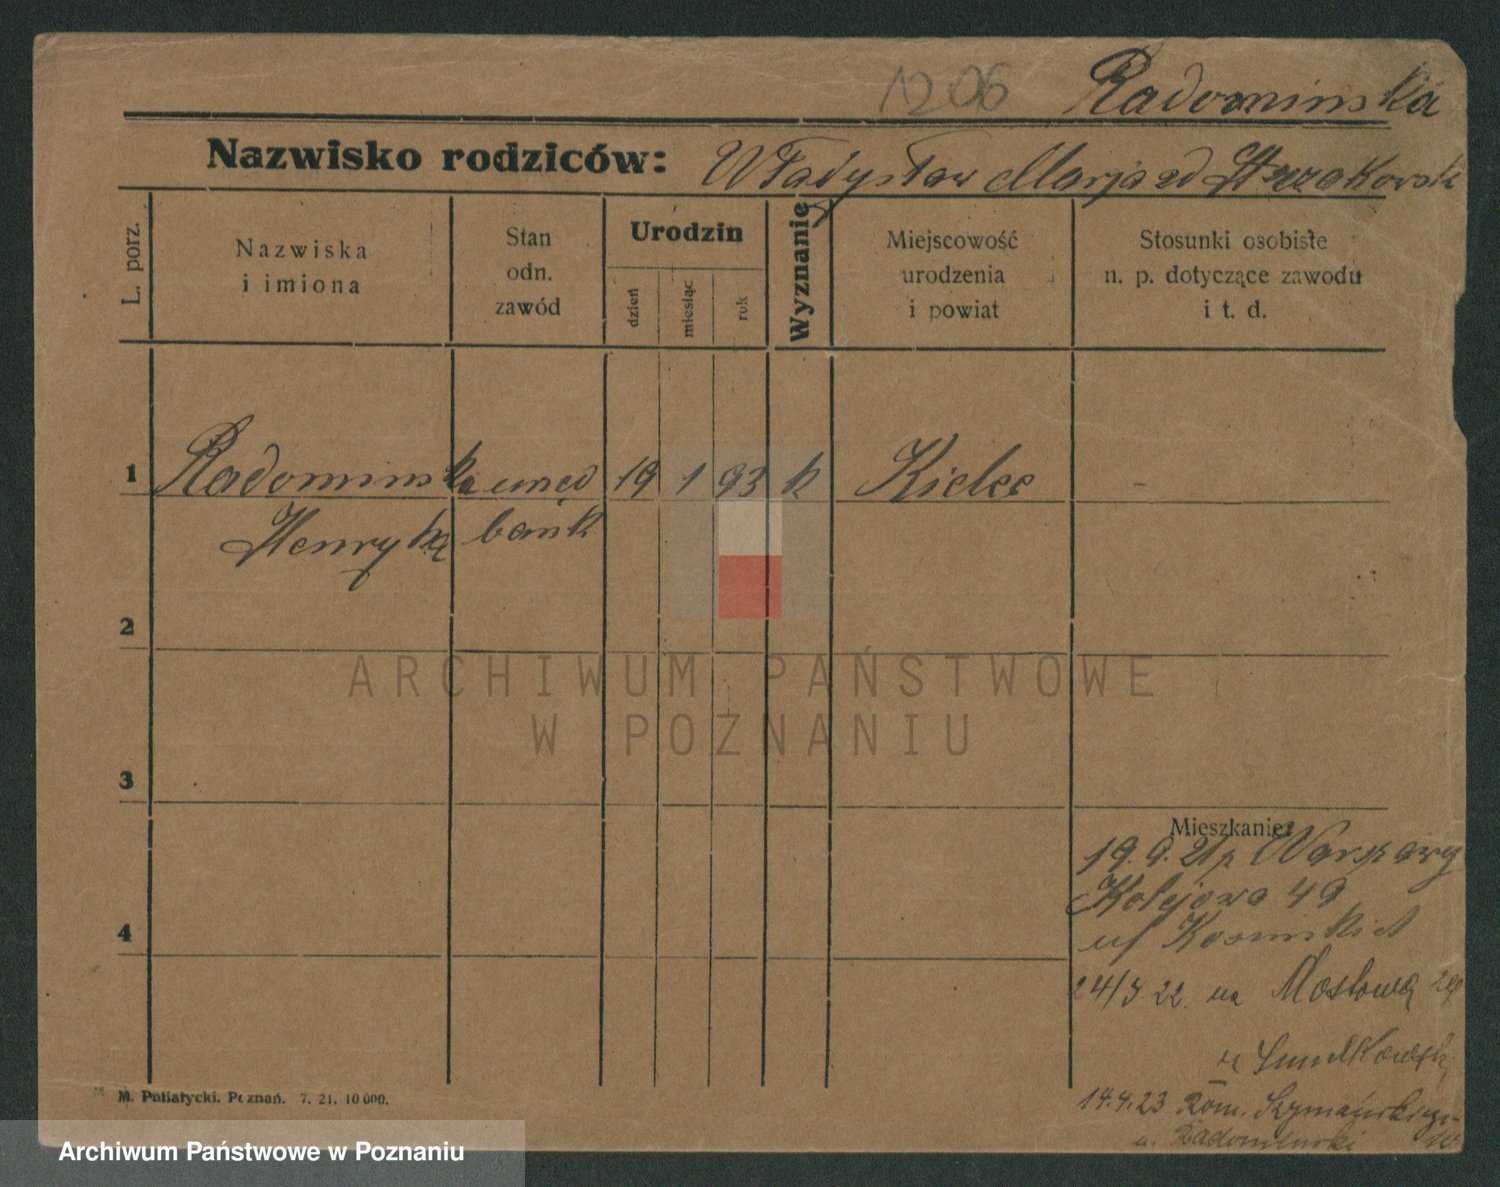 1206 Radominska
Nazwisko rodziców: Władysław Marja zd
L. porz.
Nazwiska
i imiona
Stan
odn.
zawód
Urodzin
dzień
miesiąc
rok
Wyznanie
Miejscowość
urodzenia
i powiat
Stosunki osobiste
n. p. dotyczące zawodu
i t. d.
1 Radominska 19 1 93 k Kielce -
Henryka bank
2
3
4
Mieszkanie:
19.9.21 Warszawy
Kolejowa 49
24/3 22 na Mostową
14.4.23 Rom. Szymańskiego
u. Radominski
M. Putiatycki. Poznań. 7. 21. 10 000.
ARCHIWUM PAŃSTWOWE
W POZNANIU
Archiwum Państwowe w Poznaniu